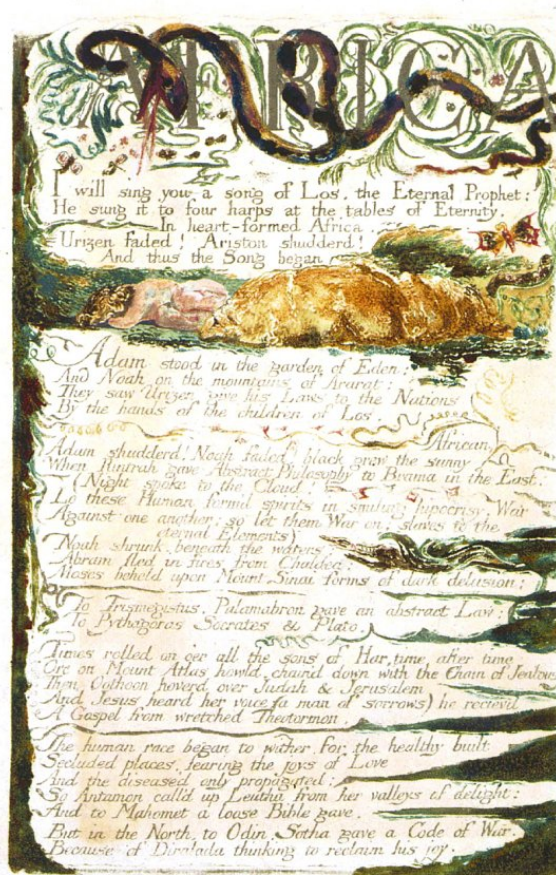 AFRICA
I will sing you a song of Los, the Eternal Prophet:
He sung it to four harps at the tables of Eternity.
In heart-formed Africa.
Urizen faded! Ariston shudderd!
And thus the Song began
Adam stood in the garden of Eden:
And Noah on the mountains of Ararat:
They saw Urizen give his Laws to the Nations
By the hands of the children of Los.
Adam shudderd! Noah faded! black grew the sunny African
When Rintrah gave Abstract Philosophy to Brama in the East:
(Night spoke to the Cloud!
Lo these Human form'd spirits in smiling hipocrisy. War
Against one another; so let them War on; slaves to the
eternal Elements)
Noah shrunk, beneath the waters;
Abram fled in fires from Chaldea;
Moses beheld upon Mount Sinai forms of dark delusion:
To Trismegistus. Palamabron gave an abstract Law:
To Pythagoras Socrates & Plato.
Times rolled on o'er all the sons of Har, time after time
Orc on Mount Atlas howld, chain'd down with the Chain of Jealousy
Then Oothoon hoverd over Judah & Jerusalem
And Jesus heard her voice (a man of sorrows) he recievd
A Gospel from wretched Theotormon.
The human race began to wither, for the healthy built
Secluded places, fearing the joys of Love
And the diseased only propagated:
So Antamon call'd up Leutha from her valleys of delight:
And to Mahomet a loose Bible gave.
But in the North, to Odin, Sotha gave a Code of War,
Because of Diralada thinking to reclaim his joy.